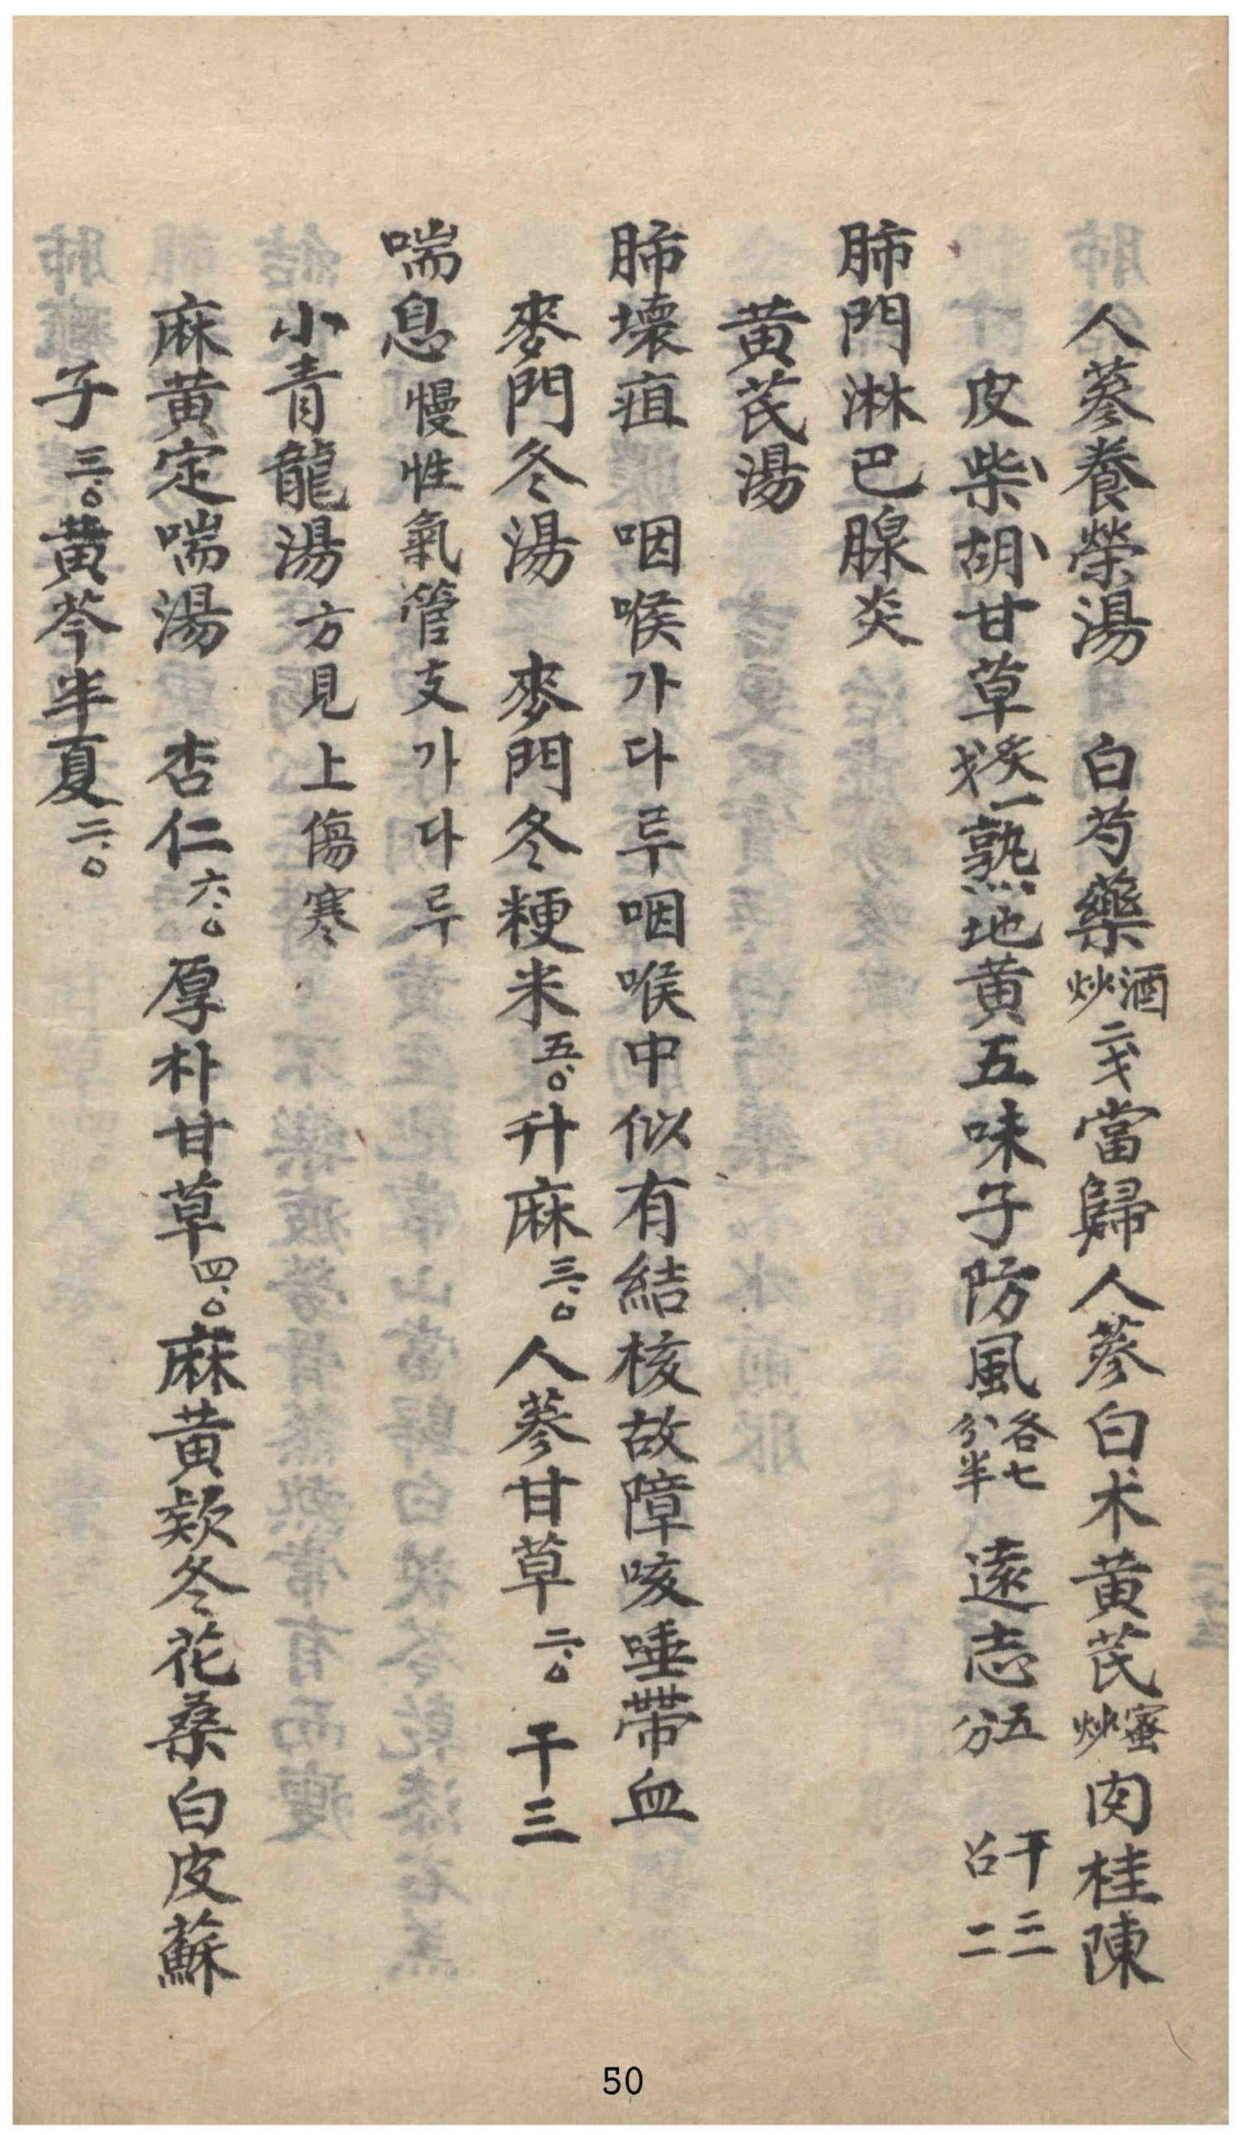 人蔘養榮湯 白芍藥酒炒二戔當歸人蔘白朮黃芪蜜炒肉桂陳
皮柴胡甘草炙一戔熟地黃五味子防風各七分半 遠志五分 干三召二
肺門淋巴腺炎
黃芪湯
肺壞疽 咽喉가다루咽喉中似有結核故障咳唾帶血
麥門冬湯 麥門冬粳米五.○升麻三.○人蔘甘草二.○ 干三
喘息慢性氣管支가다루
小青龍湯方見上傷寒
麻黃定喘湯 杏仁六.○厚朴甘草四.○麻黃欵冬花桑白皮蘇
子三.○黃芩半夏二.○
50